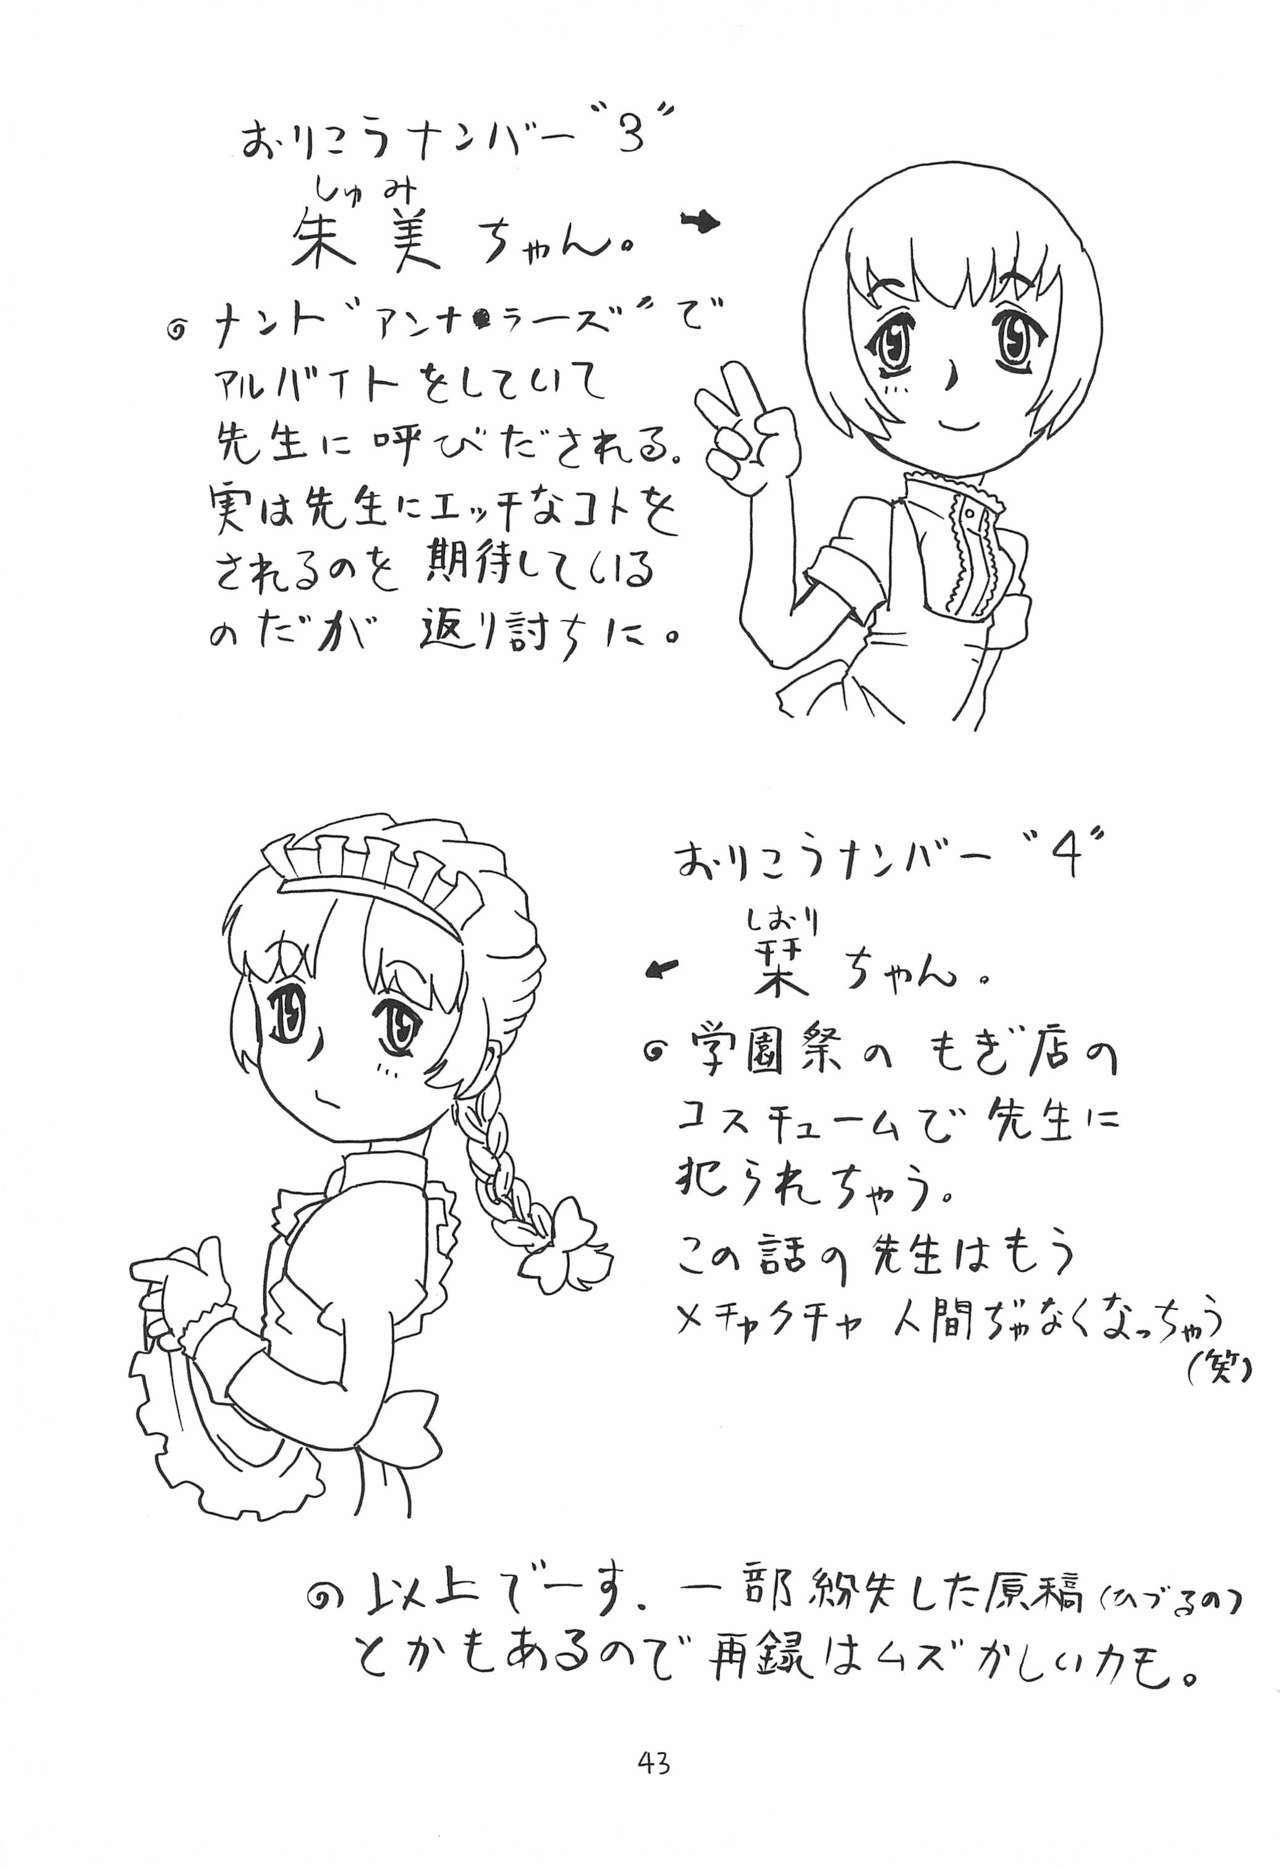 おりこうナンバー"3"
しゅみ
朱美ちゃん。
ナント"アンナ・ラーズ"で
アルバイトをしていて
先生に呼びだされる。
実は先生にエッチなコトを
されるのを期待している
のだが返り討ちに。
おりこうナンバー"4"
しおり
栞ちゃん。
学園祭のもぎ店の
コスチュームで先生に
犯られちゃう。
この話の先生はもう
メチャクチャ人間ぢゃなくなっちゃう
(笑)
以上でーす。一部紛失した原稿(ひづるの)
とかもあるので再録はムズかしいカモ。
43